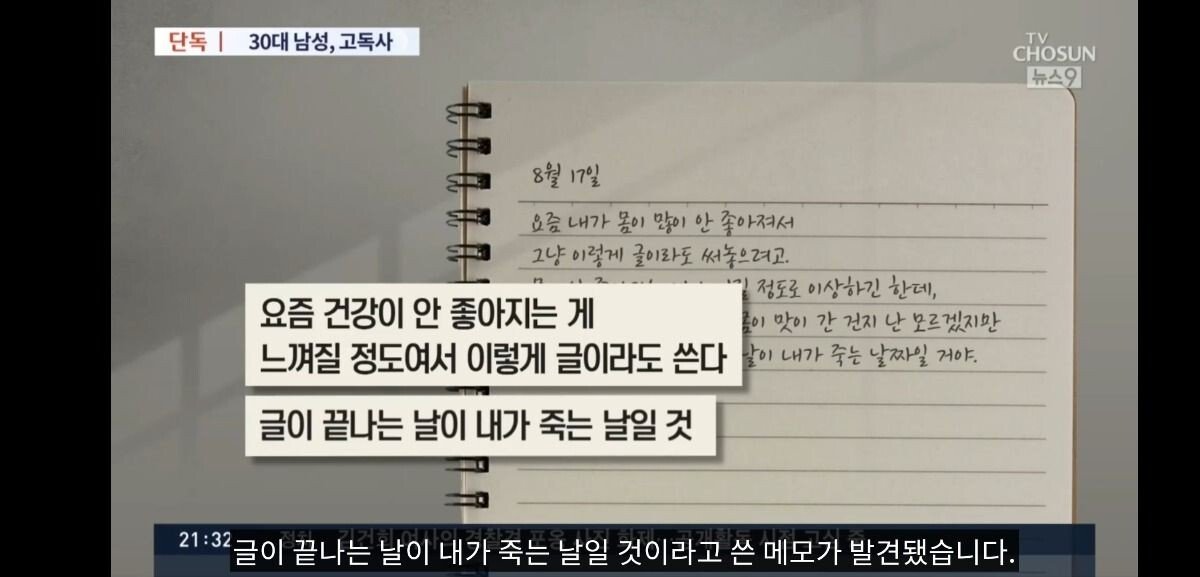 단독 | 30대 남성, 고독사
TV
CHOSUN
뉴스9
8월 17일
요즘 내가 몸이 많이 안 좋아져서
그냥 이렇게 글이라도 써놓으려고.
정도로 이상하긴 한데,
맛이 간 건지 난 모르겠지만
내가 죽는 날짜일 거야.
요즘 건강이 안 좋아지는 게
느껴질 정도여서 이렇게 글이라도 쓴다
글이 끝나는 날이 내가 죽는 날일 것
21:32
글이 끝나는 날이 내가 죽는 날일 것이라고 쓴 메모가 발견됐습니다.